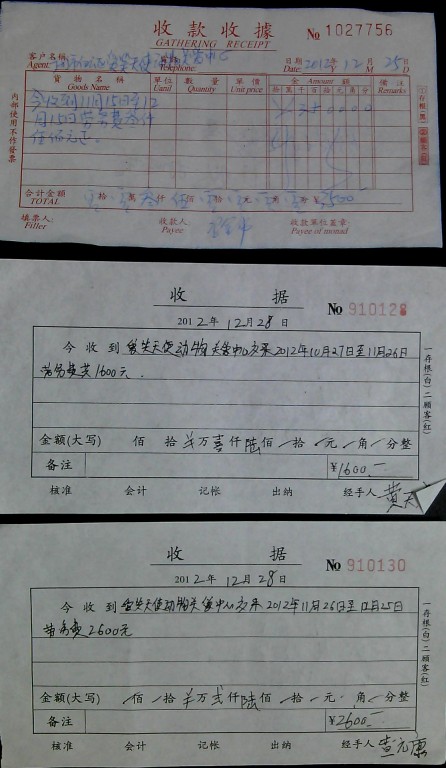 收款收據
GATHERING RECEIPT
No 1027756
客户名稱
Agent:
Telephone:
日期 2012年12月25日
Date: M D
貨物名稱 單位 數量 單價 金 Amount 額 備注
Goods Name Unit Quantity Unit price 拾萬千百拾元角分 Remarks
今收到11月15日至12
月15日劳务费叁仟
伍佰元正
¥350000
合计金額
TOTAL 拾 萬 叁仟 伍佰 拾 元 角 分 ¥3500
填票人: 收款人 收款單位蓋章
Filler Payee Payee of monad
内部使用不作發票
收 据
No 910128
2012年12月28日
今收到 天使动物关爱中心 2012年10月27日至11月26日
劳务费共1600元.
金额(大写) 佰 拾 万 壹仟 陆佰 拾 元 角 分整
备注 ¥1600.—
核准 会计 记帐 出纳 经手人 黄
一存根(白)二顾客(红)
收 据
No 910130
2012年12月28日
今收到 天使动物关爱中心 2012年11月26日至12月25日
劳务费2600元
金额(大写) 佰 拾 万 贰仟 陆佰 拾 元 角 分整
备注 ¥2600.—
核准 会计 记帐 出纳 经手人 查元康
一存根(白)二顾客(红)